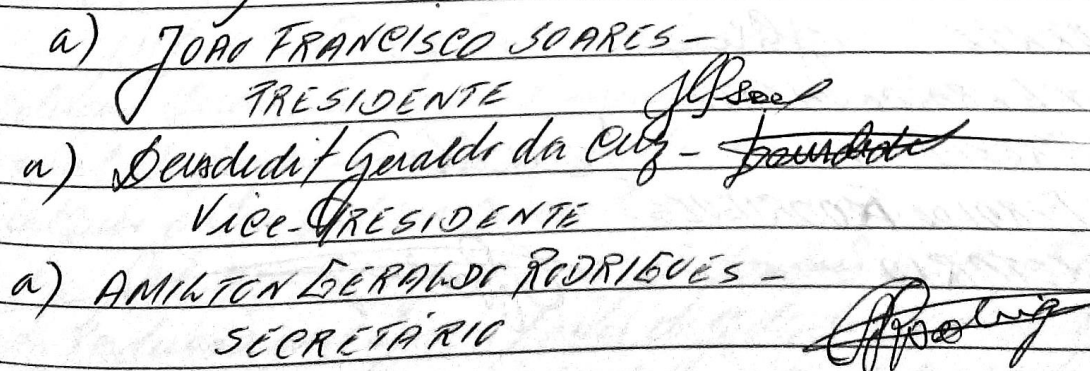 a) JOÃO FRANCISCO SOARES -
PRESIDENTE
a) Deusdedit Geraldo da Cruz -
Vice-PRESIDENTE
a) AMILTON GERALDO RODRIGUES -
SECRETÁRIO